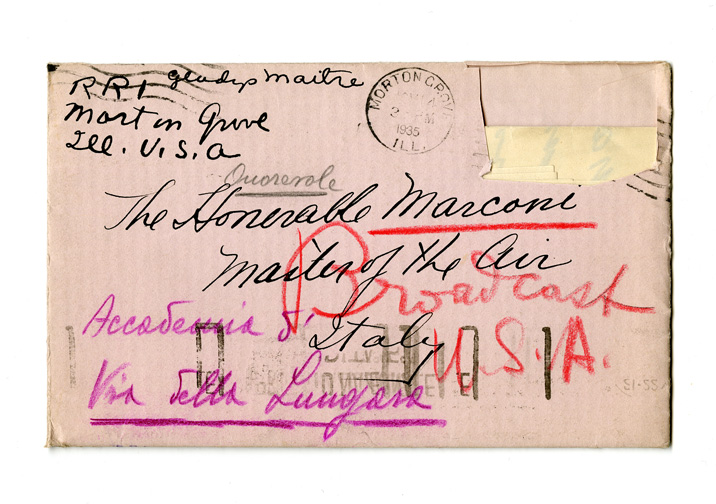 Gladys Maitre
RR1
Morton Grove
Ill. U.S.A
MORTON GROVE
PM
1935
ILL.
Onorevole
The Honerable Marconi
Master of the Air
Broadcast
Accademia d'
Italy
U.S.A.
Via della Lungara